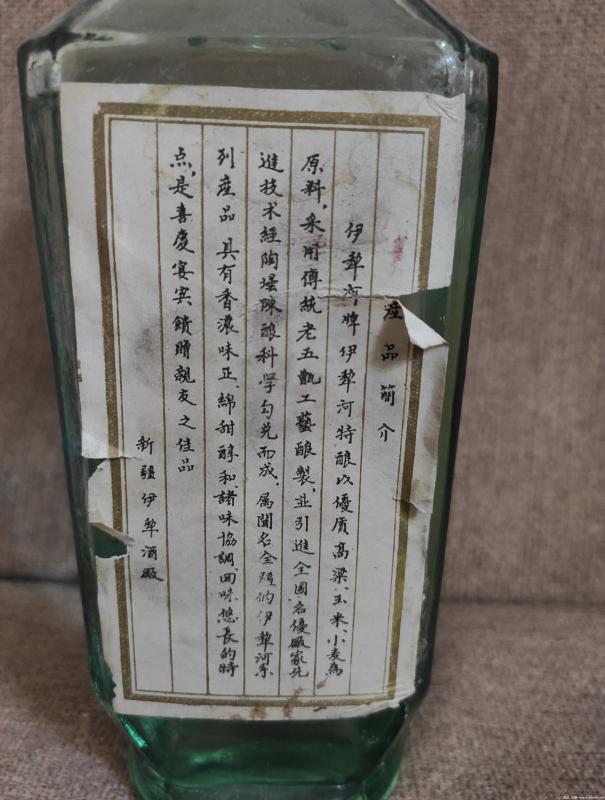 產品簡介
伊犂河牌伊犂河特酿以優质高粱、玉米、小麦為
原料,采用傳統老五甑工藝酿製,並引進全國名優廠家先
進技术經陶壜陳酿科學勾兑而成.属聞名全疆的伊犂河系
列產品 具有香濃味正、綿甜醇和、諸味協調、回味悠長的特
点,是喜慶宴宾饋贈親友之佳品
新疆伊犂酒廠